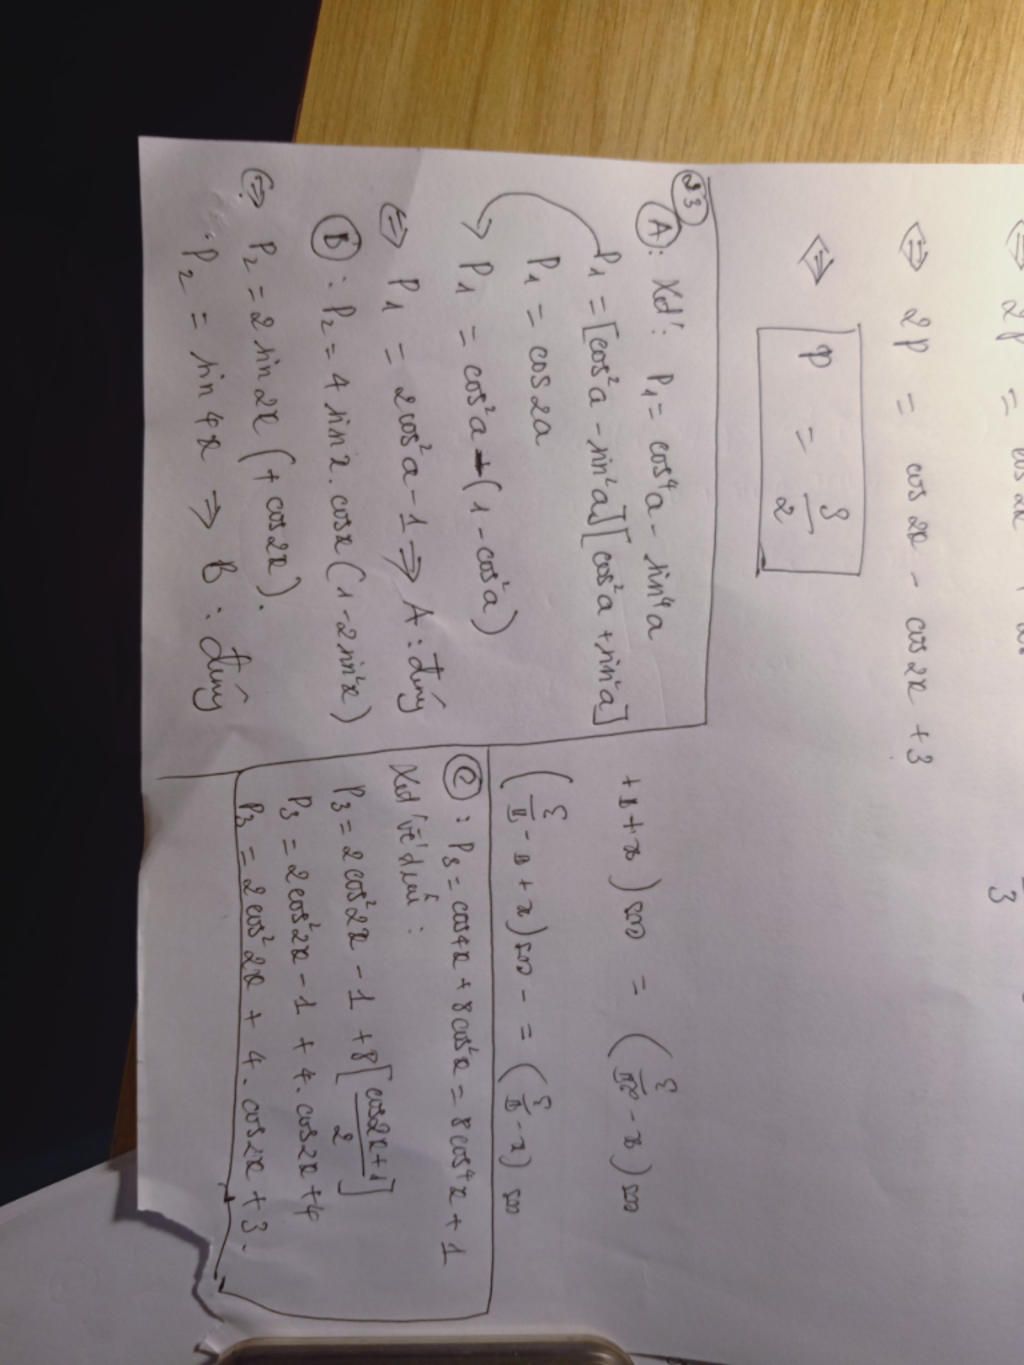 ⇔ 2P = cos 2x
3
⇔ 2P = cos 2x - cos 2x + 3
⇔ P = 3/2
23
A: Xét: P₁ = cos⁴a - sin⁴a
P₁ = [cos²a - sin²a][cos²a + sin²a]
P₁ = cos 2a
→ P₁ = cos²a - (1 - cos²a)
⇔ P₁ = 2cos²a - 1 ⇒ A: đúng
B: P₂ = 4 sin x . cos x (1 - 2sin²x)
⇔ P₂ = 2 sin 2x (+ cos 2x).
P₂ = sin 4x ⇒ B: đúng
cos(x - 2π/3) = cos(x + π +
cos(x - π/3) = - cos(x + π - π/3)
C: P₃ = cos4x + 8cos²x = 8cos⁴x + 1
Xét vế đầu:
P₃ = 2cos²2x - 1 + 8[(cos2x + 1)/2]
P₃ = 2cos²2x - 1 + 4.cos2x + 4
P₃ = 2cos²2x + 4.cos2x + 3.